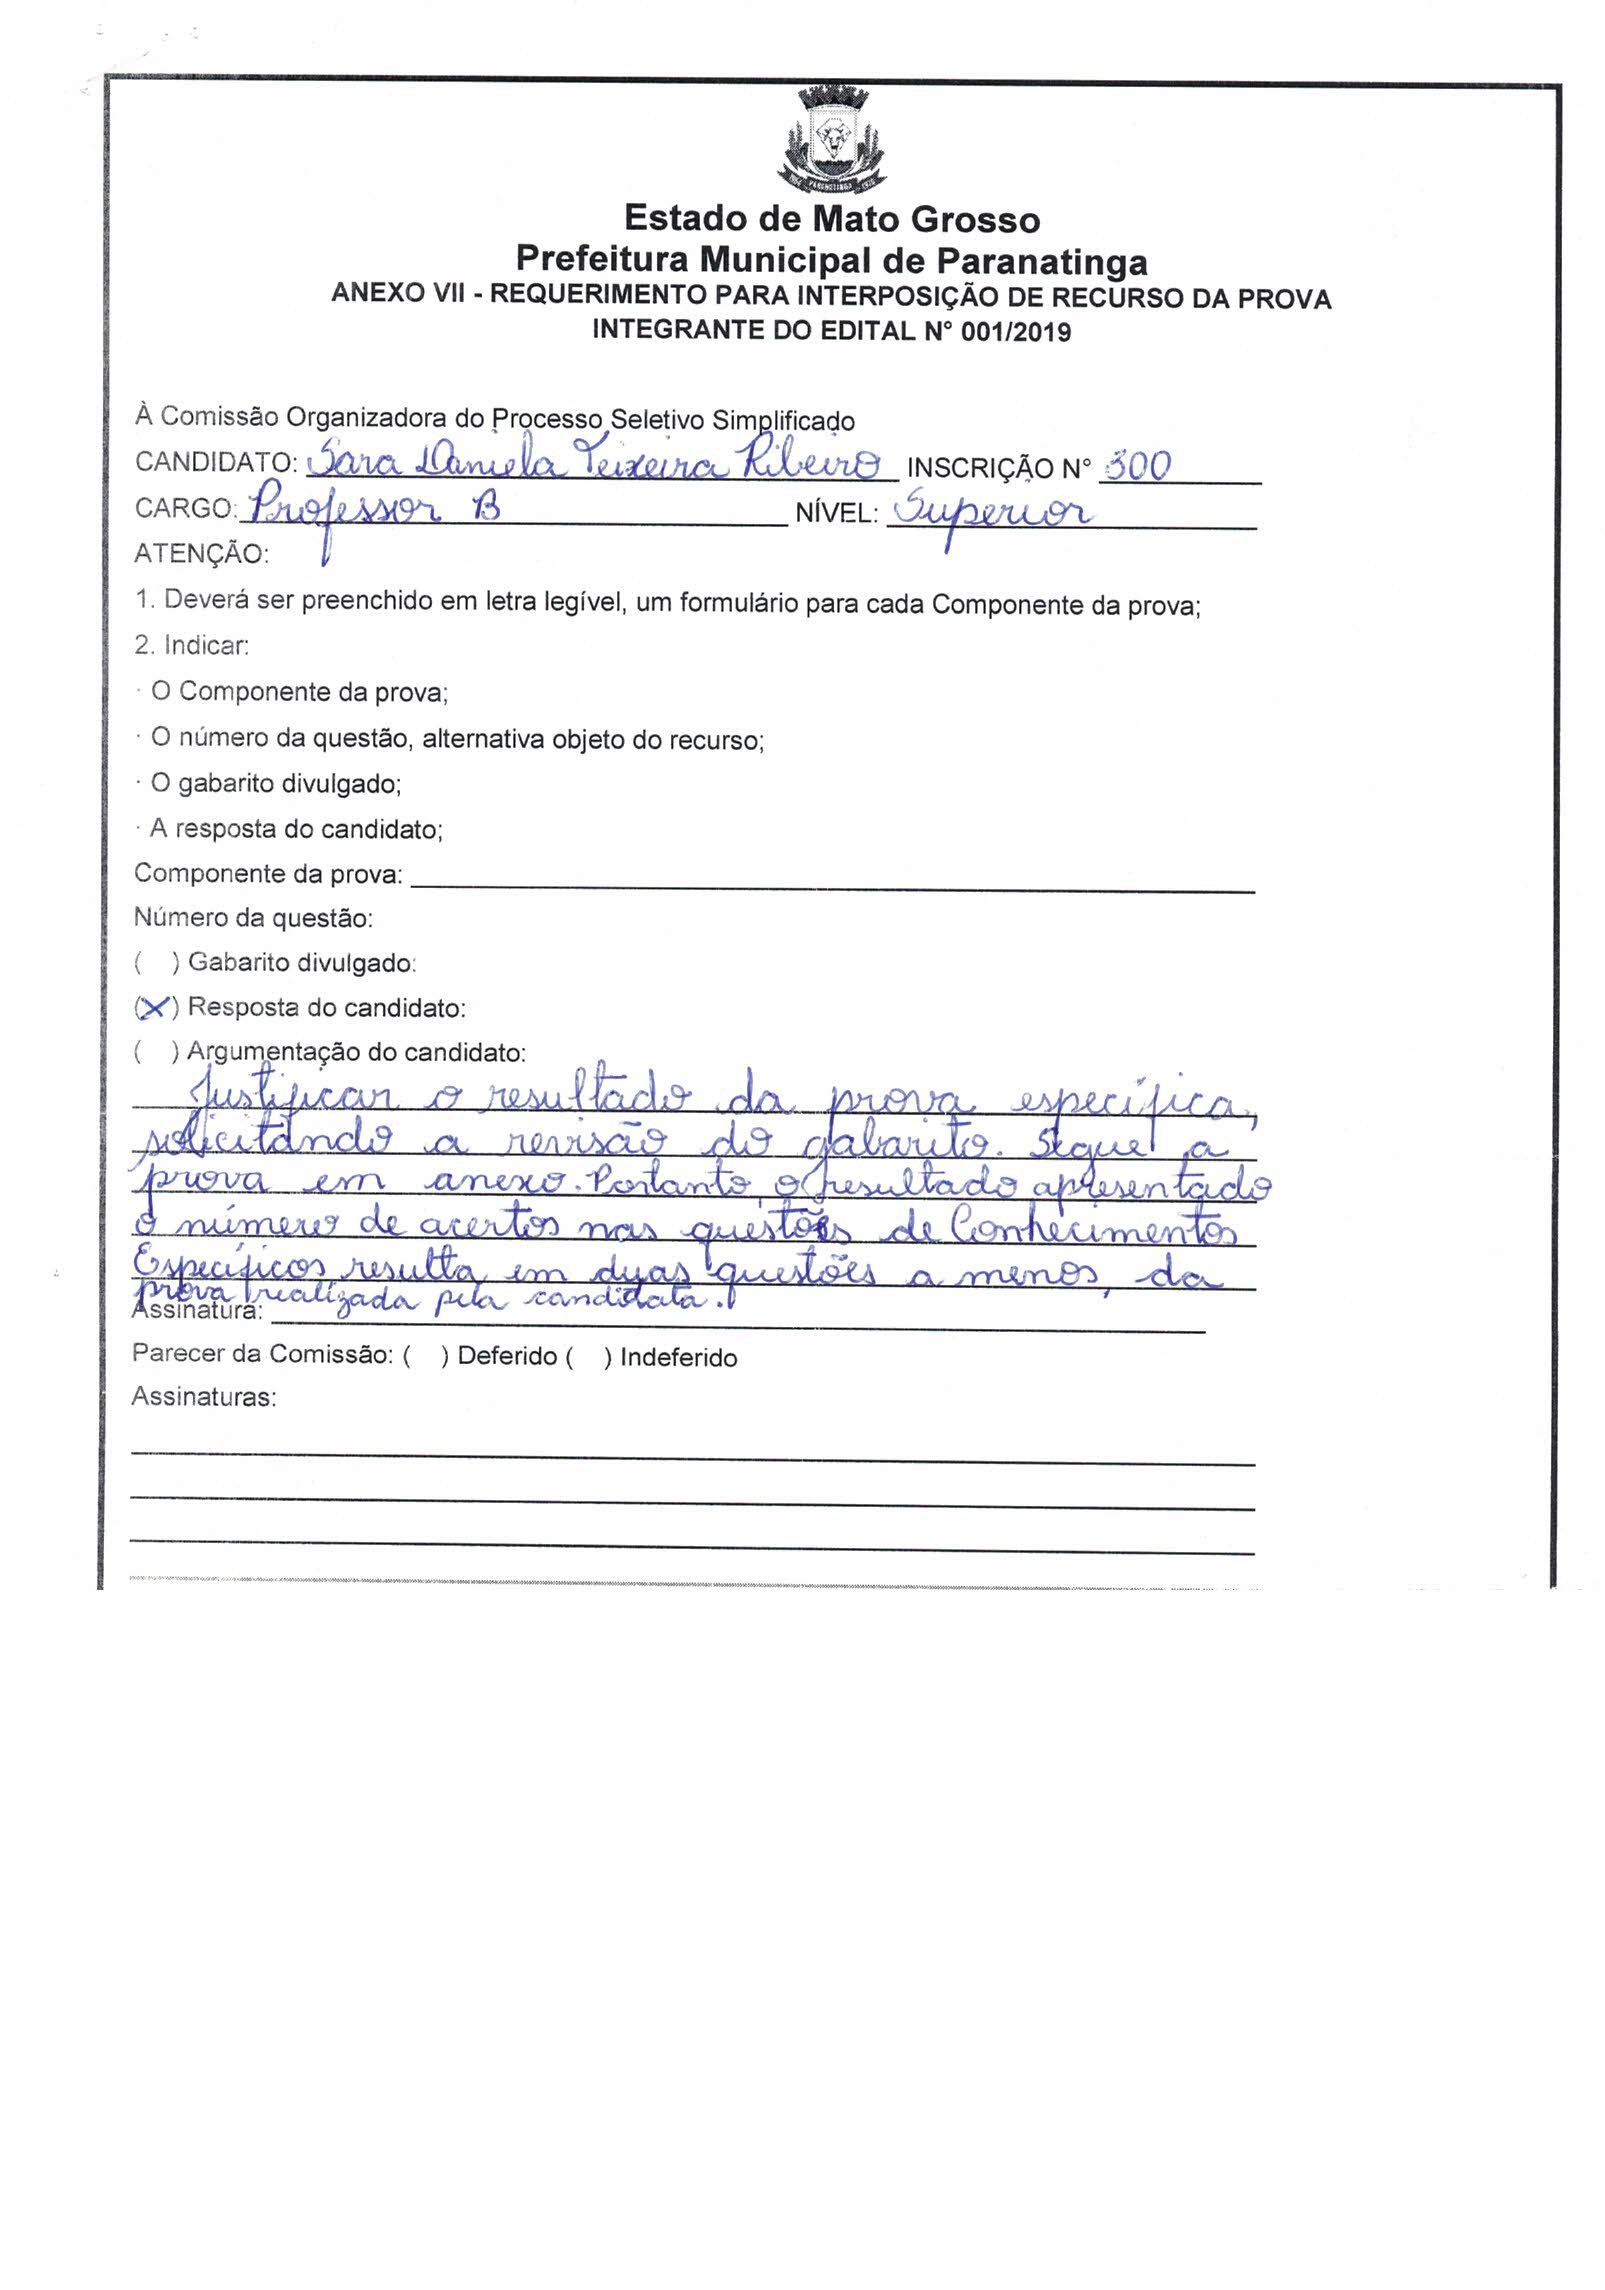 Estado de Mato Grosso
Prefeitura Municipal de Paranatinga
ANEXO VII - REQUERIMENTO PARA INTERPOSIÇÃO DE RECURSO DA PROVA
INTEGRANTE DO EDITAL N° 001/2019
À Comissão Organizadora do Processo Seletivo Simplificado
CANDIDATO: Sara Daniela Teixeira Ribeiro INSCRIÇÃO N° 300
CARGO: Professor B NÍVEL: Superior
ATENÇÃO:
1. Deverá ser preenchido em letra legível, um formulário para cada Componente da prova;
2. Indicar:
· O Componente da prova;
· O número da questão, alternativa objeto do recurso;
· O gabarito divulgado;
· A resposta do candidato;
Componente da prova:
Número da questão:
( ) Gabarito divulgado:
(X) Resposta do candidato:
( ) Argumentação do candidato:
Justificar o resultado da prova específica,
solicitando a revisão do gabarito. Segue a
prova em anexo. Portanto, o resultado apresentado
o número de acertos nas questões de Conhecimentos
Específicos resulta em duas questões a menos, da
prova realizada pela candidata.
Assinatura:
Parecer da Comissão: ( ) Deferido ( ) Indeferido
Assinaturas: